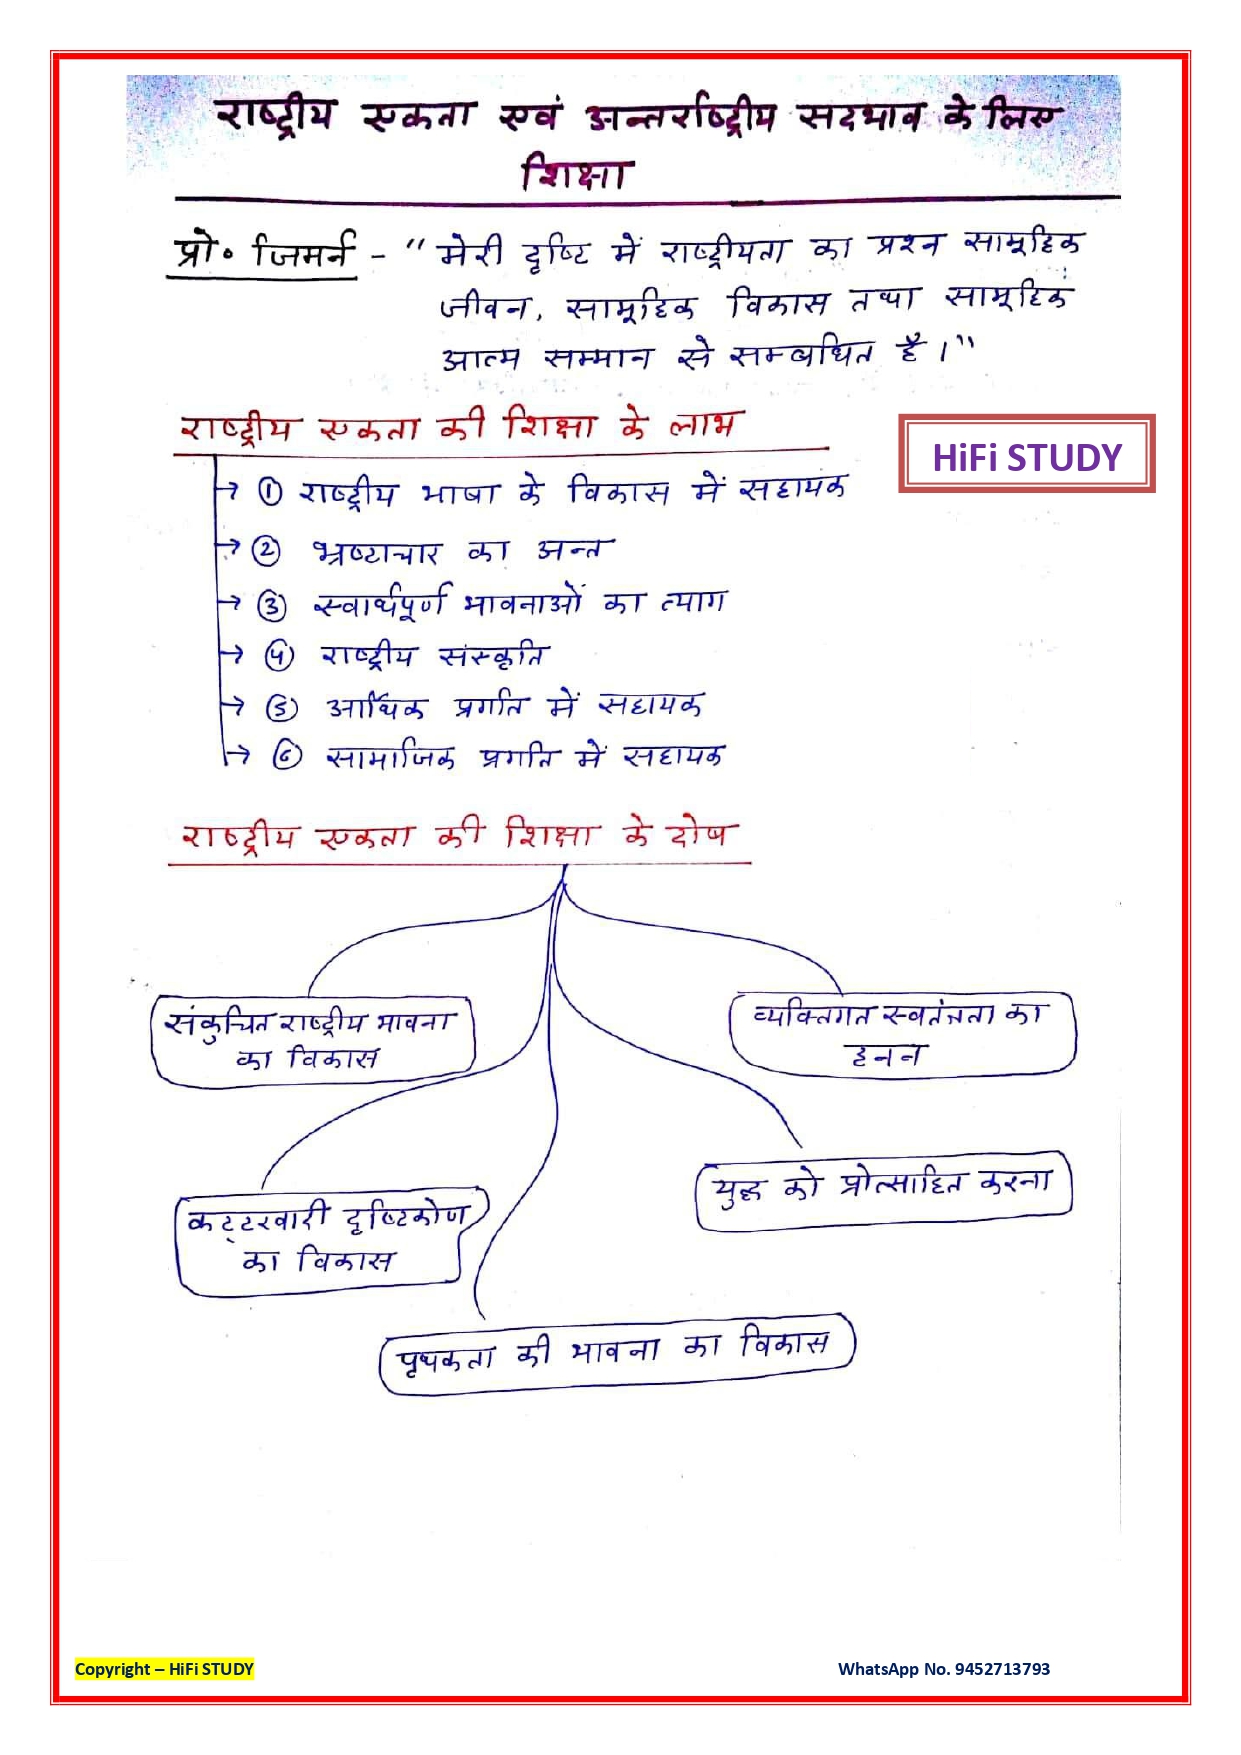 राष्ट्रीय एकता एवं अन्तर्राष्ट्रीय सदभाव के लिए
शिक्षा
प्रो॰ जिमर्न - “ मेरी दृष्टि में राष्ट्रीयता का प्रश्न सामूहिक
जीवन, सामूहिक विकास तथा सामूहिक
आत्म सम्मान से सम्बधित है ।”
राष्ट्रीय एकता की शिक्षा के लाभ
HiFi STUDY
→ ① राष्ट्रीय भाषा के विकास में सहायक
→ ② भ्रष्टाचार का अन्त
→ ③ स्वार्थपूर्ण भावनाओं का त्याग
→ ④ राष्ट्रीय संस्कृति
→ ⑤ आर्थिक प्रगति में सहायक
→ ⑥ सामाजिक प्रगति में सहायक
राष्ट्रीय एकता की शिक्षा के दोष
संकुचित राष्ट्रीय भावना
का विकास
व्यक्तिगत स्वतंत्रता का
हनन
कट्टरवादी दृष्टिकोण
का विकास
युद्ध को प्रोत्साहित करना
पृथकता की भावना का विकास
Copyright – HiFi STUDY
WhatsApp No. 9452713793